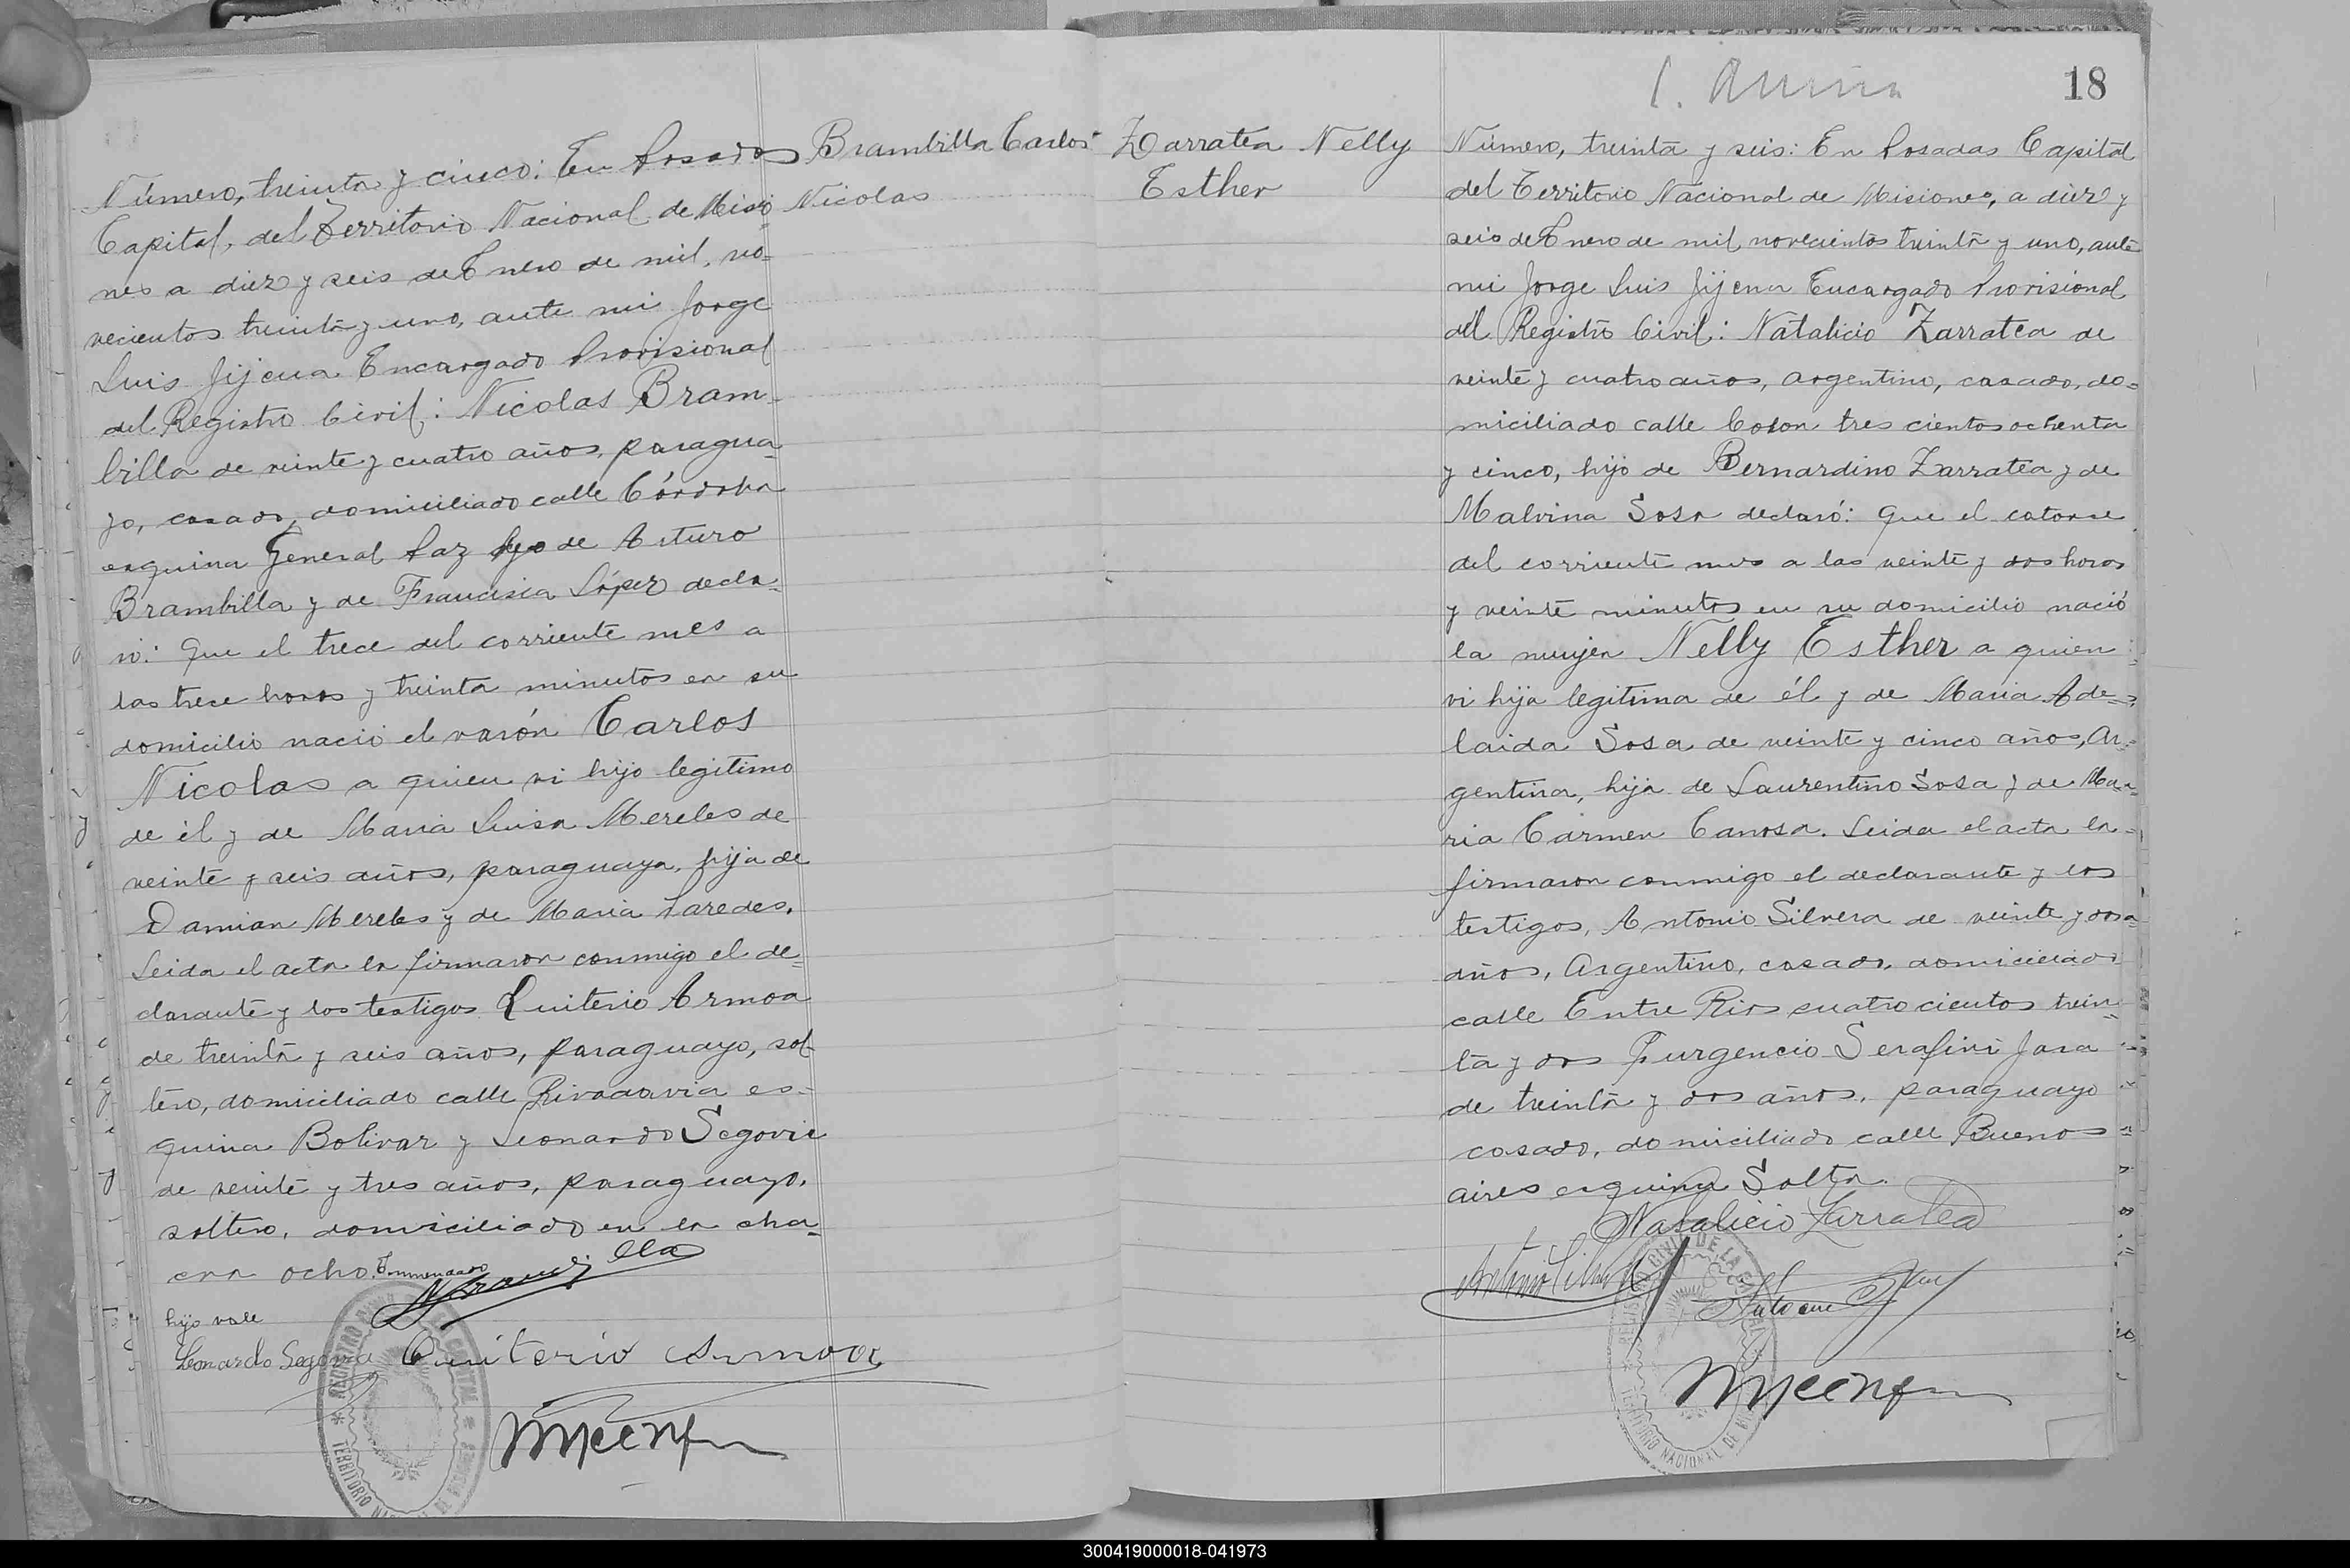 Número, treinta y cinco: En Posadas
Capital, del Territorio Nacional de Misio
nes a diez y seis de Enero de mil, no=
vecientos treinta y uno, ante mi Jorge
Luis Jijena Encargado Provisional
del Registro Civil: Nicolas Bram-
billa de veinte y cuatro años, paragua-
yo, casado, domiciliado calle Córdoba
esquina General Paz hijo de Arturo
Brambilla y de Francisca López decla-
ró: Que el trece del corriente mes a
las trece horas y treinta minutos en su
domicilio nació el varón Carlos
Nicolas a quien vi hijo legitimo
de él y de Maria Luisa Mereles de
veinte y seis años, paraguaya, hija de
Damian Mereles y de Maria Paredes.
Leida el acta la firmaron conmigo el de=
clarante y los testigos Quiterio Armoa
de treinta y seis años, paraguayo, sol-
tero, domiciliado calle Rivadavia es=
quina Bolivar y Leonardo Segovia
de veinte y tres años, paraguayo,
soltero, domiciliado en la cha-
cra ocho. Enmendado
hijo vale
Leonardo Segovia Quiterio Armoa
Brambilla Carlos
Nicolas
Zarratea Nelly
Esther
18
Número, treinta y seis: En Posadas Capital
del Territorio Nacional de Misiones, a diez y
seis de Enero de mil novecientos treinta y uno, ante
mi Jorge Luis Jijena Encargado Provisional
del Registro Civil: Natalicio Zarratea de
veinte y cuatro años, argentino, casado, do=
miciliado calle Colon tres cientos ochenta
y cinco, hijo de Bernardino Zarratea y de
Malvina Sosa declaró: Que el catorce
del corriente mes a las veinte y dos horas
y veinte minutos en su domicilio nació
la mujer Nelly Esther a quien
vi hija legitima de él y de Maria Ade=
laida Sosa de veinte y cinco años, Ar=
gentina, hija de Laurentino Sosa y de Ma=
ria Cármen Canosa. Leida el acta la
firmaron conmigo el declarante y los
testigos, Antonio Silvera de veinte y dos
años, Argentino, casado, domiciliado
calle Entre Rios cuatro cientos trein=
ta y dos Furgencio Serafini Jara
de treinta y dos años, paraguayo
casado, domiciliado calle Buenos
aires esquina Salta.
Natalicio Zarratea
300419000018-041973